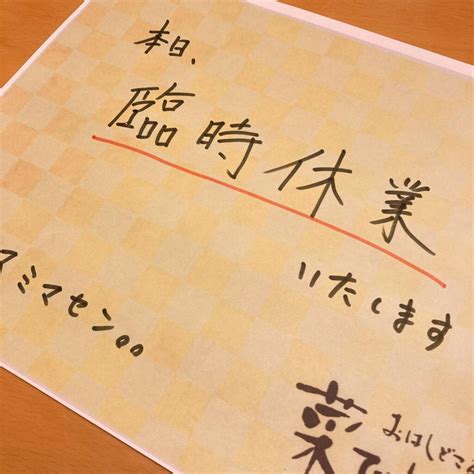 本日、
臨時休業
いたします
スミマセン。。
おはしどこ
菜